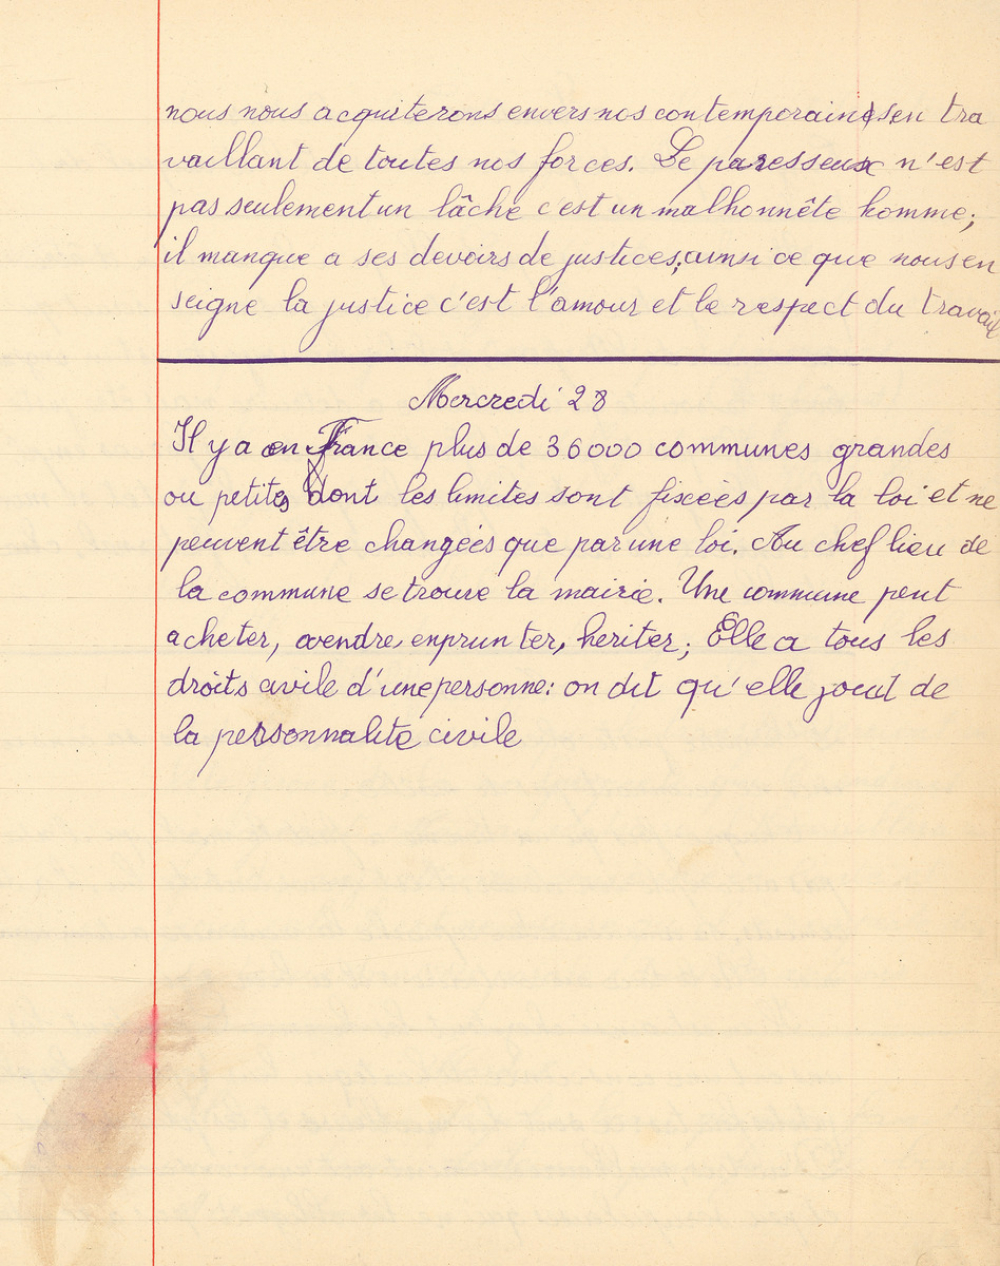 nous nous acquiterons envers nos contemporains en tra
vaillant de toutes nos forces. Le paresseux n'est
pas seulement un lâche c'est un malhonnête homme;
il manque a ses devoirs de justices; ainsi ce que nous en
seigne la justice c'est l'amour et le respect du travail
Mercredi 28
Il y a en France plus de 36000 communes grandes
ou petites dont les limites sont fixées par la loi et ne
peuvent être changées que par une loi. Au chef lieu de
la commune se trouve la mairie. Une commune peut
acheter, vendre, enprunter, heriter; Elle a tous les
droits civile d'une personne: on dit qu'elle jouit de
la personnalité civile